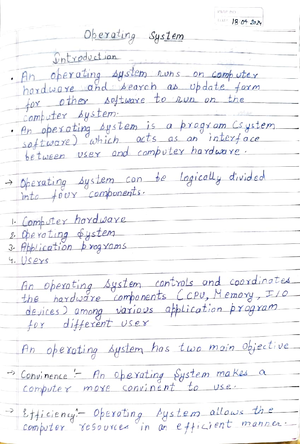 18 04 2024
Operating System
Introduction
• An operating system runs on computer
hardware and search as update form
for other software to run on the
computer system.
• An operating system is a program (system
software) which acts as an interface
between user and computer hardware.
→ Operating system can be logically divided
into four components.
1. Computer hardware
2. Operating System
3. Application programs
4. Users
An operating system controls and coordinates
the hardware components (CPU, Memory, I/O
devices) among various application program
for different user
An operating system has two main objective
→ Convinence:- An operating System makes a
computer more convinent to use.
→ Efficiency:- Operating System allows the
computer resources in an efficient manner.